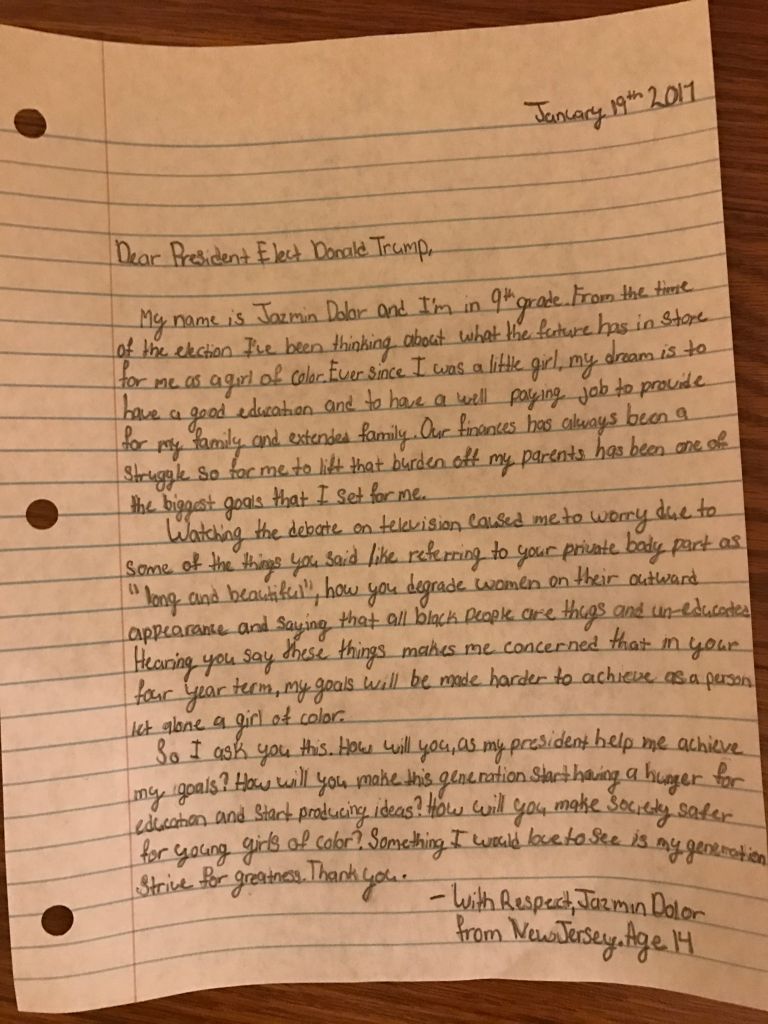 January 19th 2017
Dear President Elect Donald Trump,
My name is Jazmin Dolor and I'm in 9th grade. From the time
of the election I've been thinking about what the future has in store
for me as a girl of color. Ever since I was a little girl, my dream is to
have a good education and to have a well paying job to provide
for my family and extended family. Our finances has always been a
struggle so for me to lift that burden off my parents has been one of
the biggest goals that I set for me.
Watching the debate on television caused me to worry due to
some of the things you said like referring to your private body part as
"long and beautiful", how you degrade women on their outward
appearance and saying that all black people are thugs and un-educated
Hearing you say these things makes me concerned that in your
four year term, my goals will be made harder to achieve as a person
let alone a girl of color.
So I ask you this. How will you, as my president help me achieve
my goals? How will you make this generation start having a hunger for
education and start producing ideas? How will you make society safer
for young girls of color? Something I would love to see is my generation
strive for greatness. Thank you.
- With Respect, Jazmin Dolor
from New Jersey. Age 14